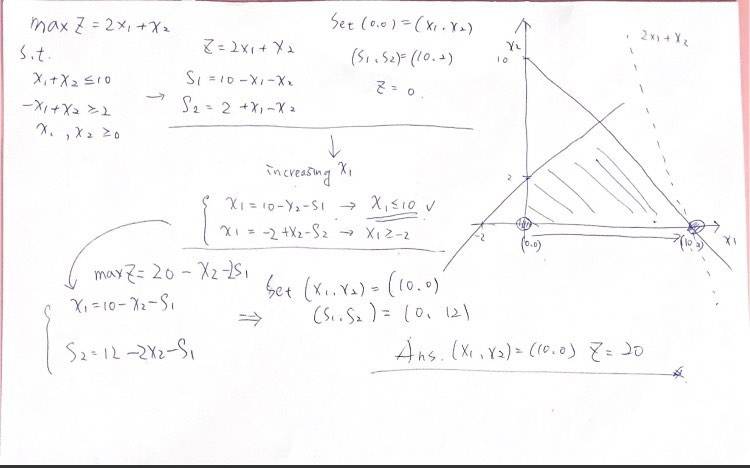 max Z = 2x₁ + x₂
s.t.
x₁ + x₂ ≤ 10
-x₁ + x₂ ≥ 2
x₁, x₂ ≥ 0
→
Z = 2x₁ + x₂
S₁ = 10 - x₁ - x₂
S₂ = 2 + x₁ - x₂
Set (0,0) = (x₁, x₂)
(S₁, S₂) = (10, 2)
Z = 0.
↓
increasing x₁
x₁ = 10 - x₂ - S₁ → x₁ ≤ 10 ✓
x₁ = -2 + x₂ - S₂ → x₁ ≥ -2
max Z = 20 - x₂ - 2S₁
x₁ = 10 - x₂ - S₁
S₂ = 12 - 2x₂ - S₁
⇒
Set (x₁, x₂) = (10, 0)
(S₁, S₂) = (0, 12)
Ans. (x₁, x₂) = (10, 0) Z = 20
x₂
10
2x₁ + x₂
2
-2
(0,0)
x₁